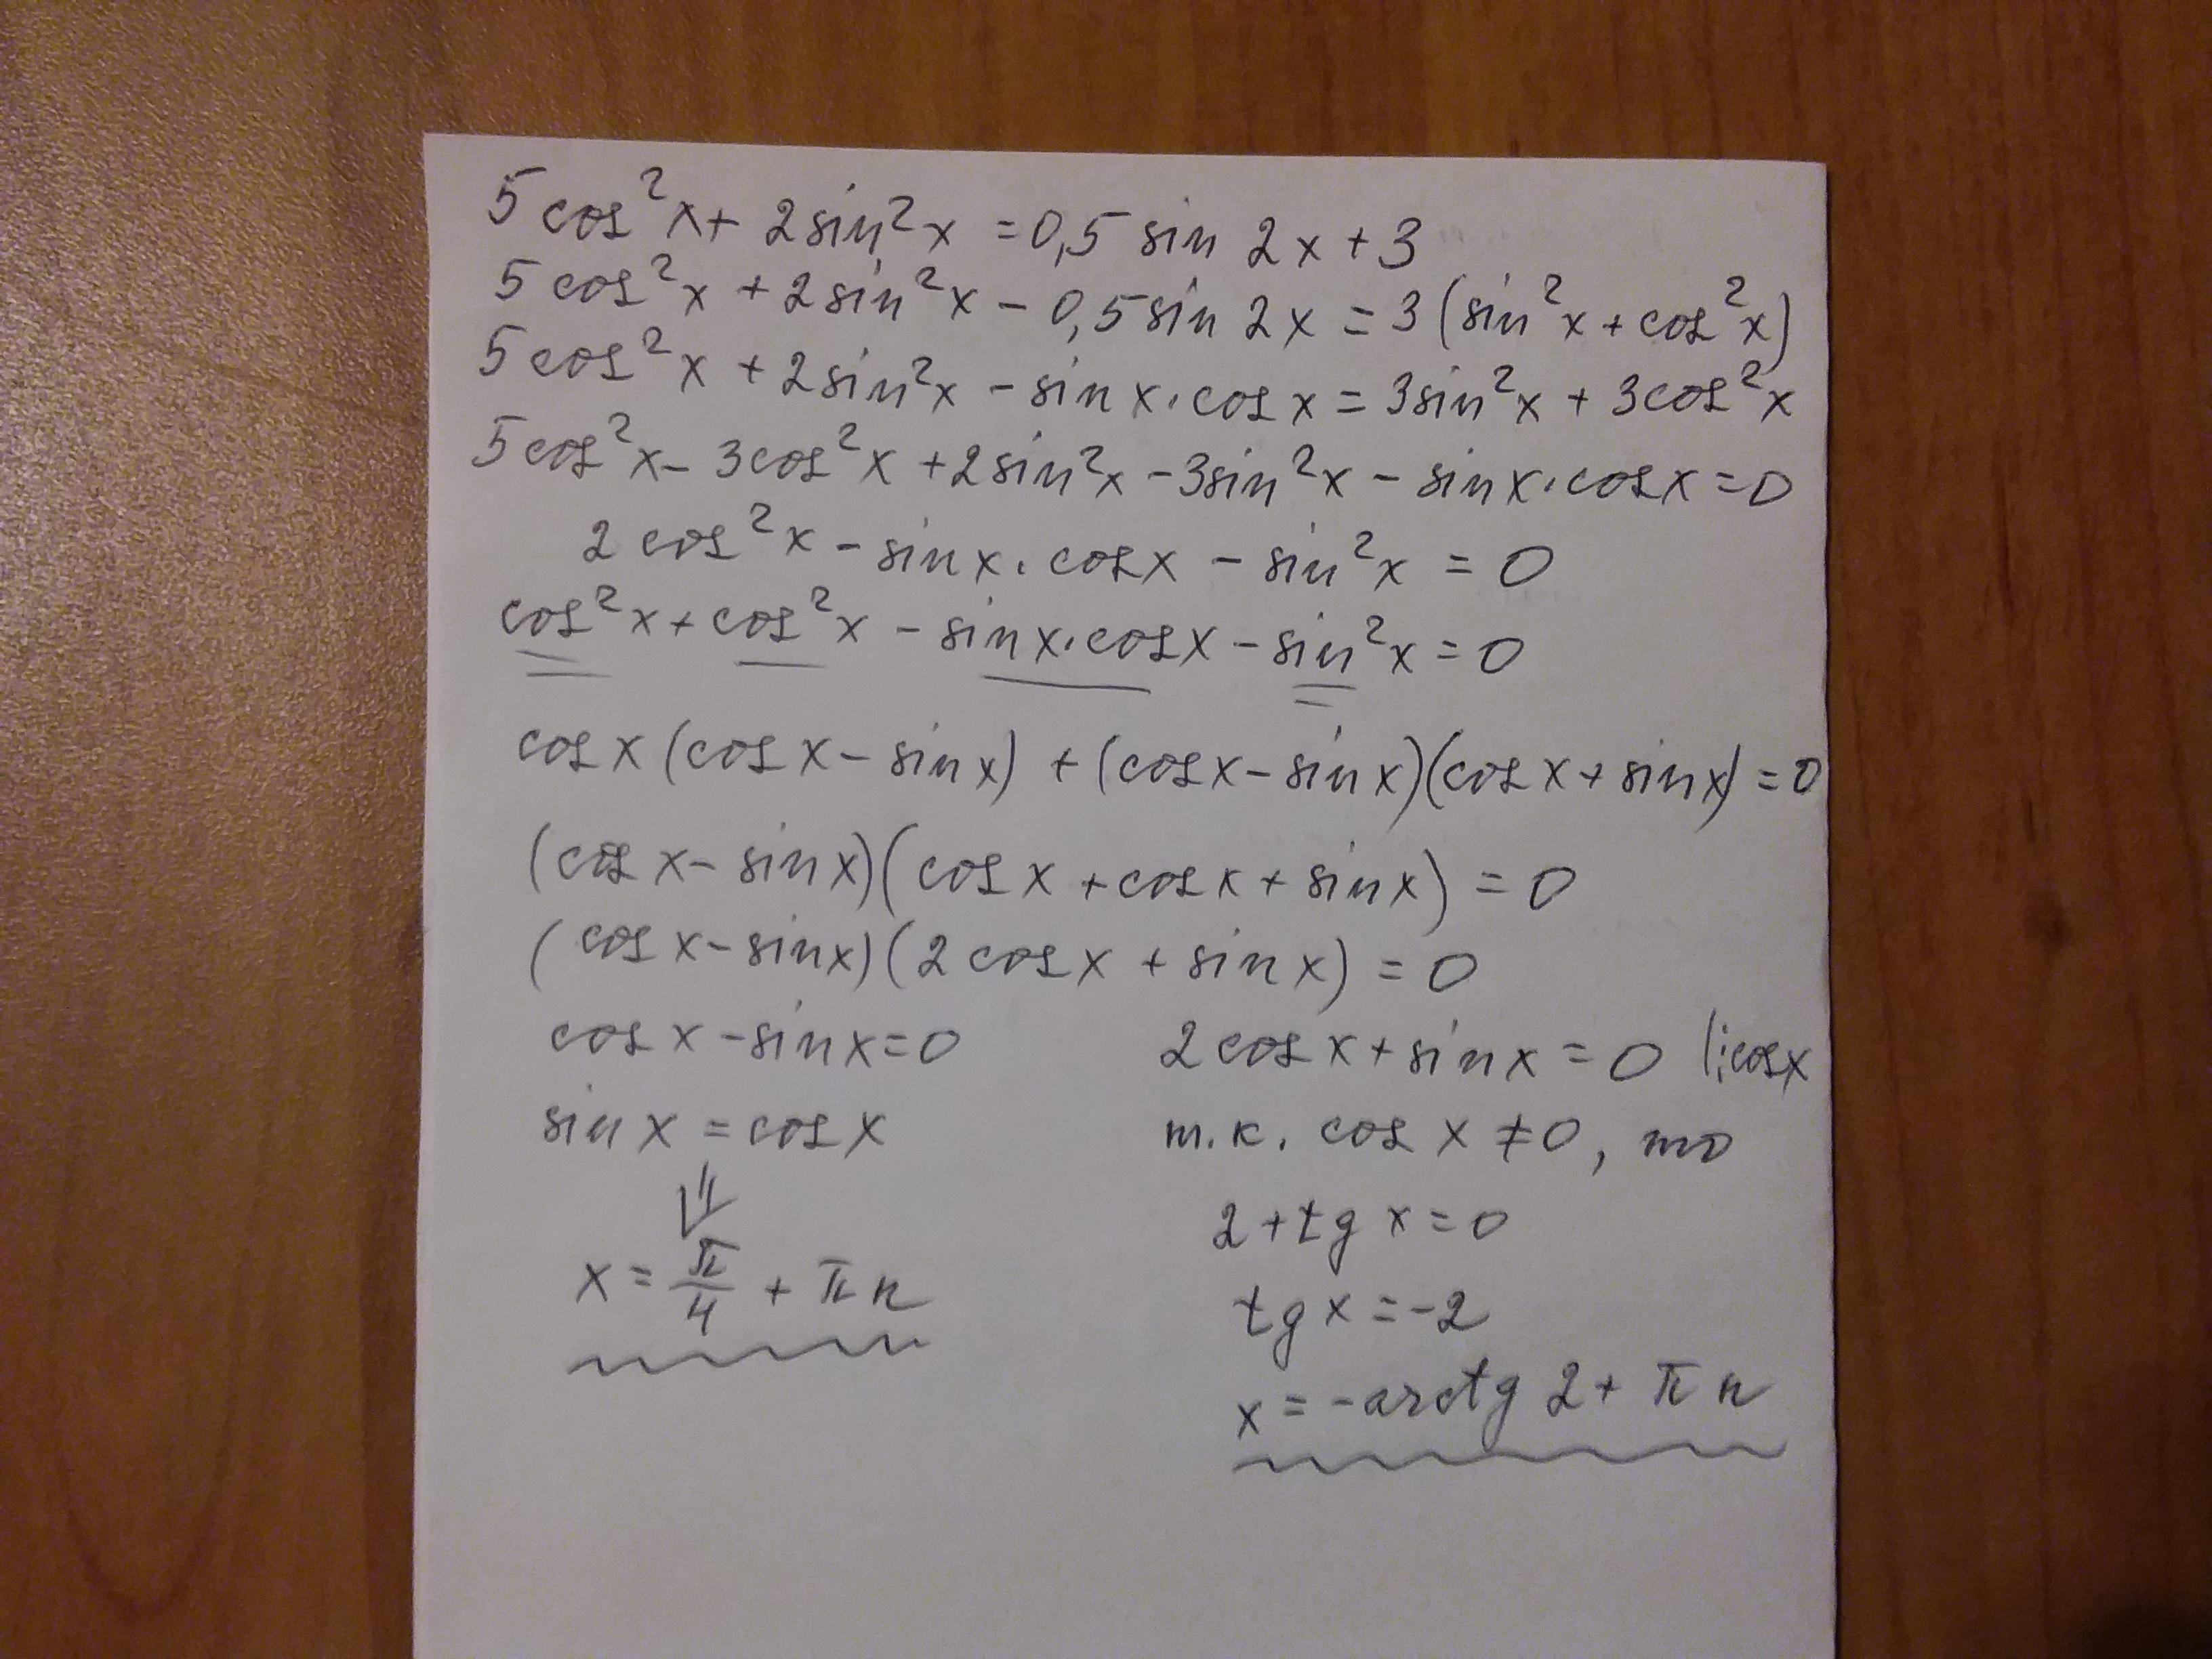 5 cos²x + 2 sin²x = 0,5 sin 2x + 3
5 cos²x + 2 sin²x - 0,5 sin 2x = 3 (sin²x + cos²x)
5 cos²x + 2 sin²x - sin x · cos x = 3 sin²x + 3 cos²x
5 cos²x - 3 cos²x + 2 sin²x - 3 sin²x - sin x · cos x = 0
2 cos²x - sin x · cos x - sin²x = 0
cos²x + cos²x - sin x · cos x - sin²x = 0
cos x (cos x - sin x) + (cos x - sin x)(cos x + sin x) = 0
(cos x - sin x)(cos x + cos x + sin x) = 0
(cos x - sin x)(2 cos x + sin x) = 0
cos x - sin x = 0
sin x = cos x
⇓
x = π/4 + πn
2 cos x + sin x = 0 |: cos x
т.к. cos x ≠ 0, то
2 + tg x = 0
tg x = -2
x = -arctg 2 + πn